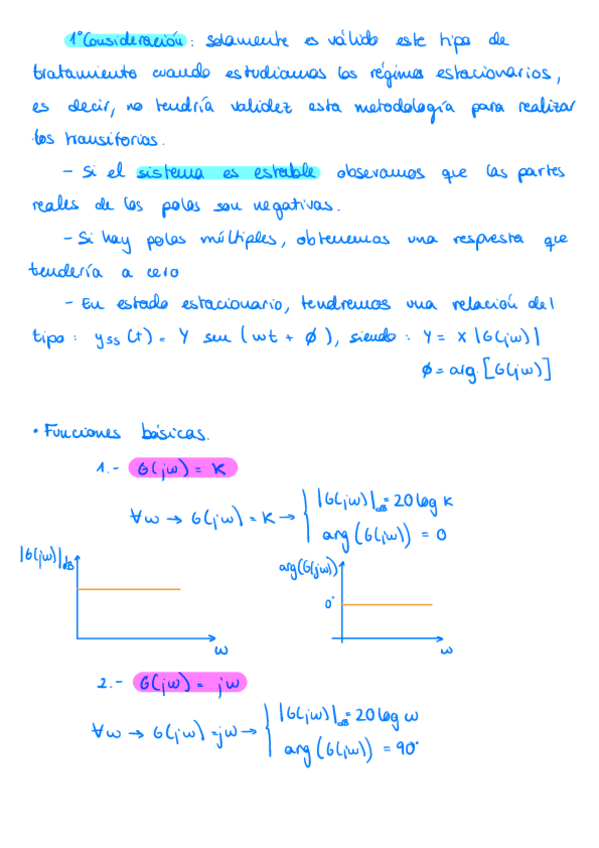 1ª Consideración: solamente es válido este tipo de
tratamiento cuando estudiamos los régimes estacionarios,
es decir, no tendría validez esta metodología para realizar
los transitorios.
- Si el sistema es estable observamos que las partes
reales de los polos son negativas.
- Si hay polos múltiples, obtenemos una respuesta que
tendería a cero
- En estado estacionario, tendremos una relación del
tipo: yss (t) = Y sen (wt + ø), siendo: Y = X |G(jw)|
ø = arg [G(jw)]
• Funciones básicas.
1.- G(jw) = K
∀w → G(jw) = K → { |G(jw)|dB = 20 log K
arg (G(jw)) = 0
|G(jw)|dB
w
arg(G(jw))
0°
w
2.- G(jw) = jw
∀w → G(jw) = jw → { |G(jw)|dB = 20 log w
arg (G(jw)) = 90°